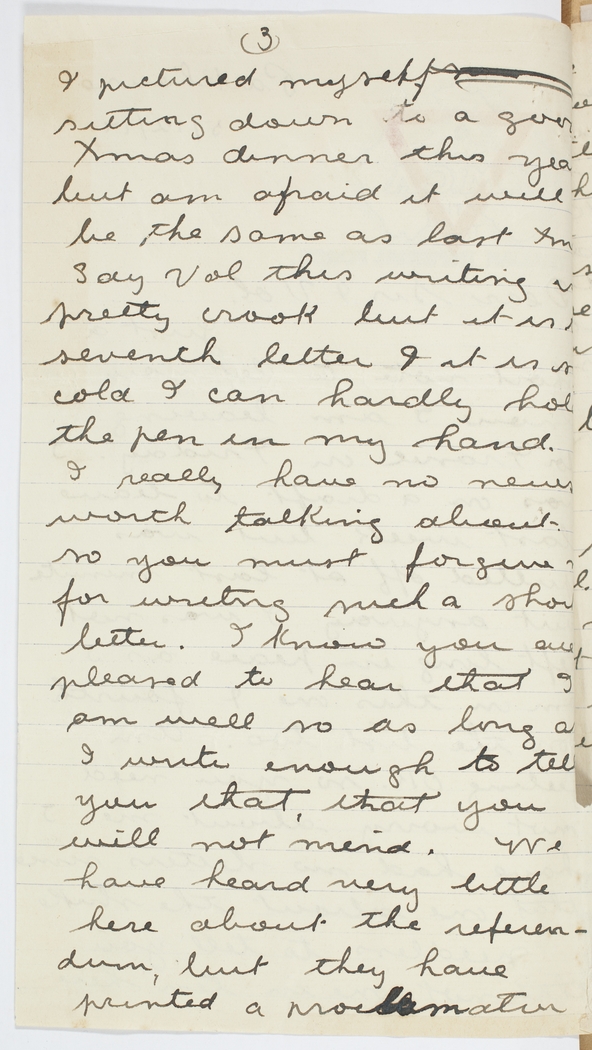 (3)
I pictured myself
sitting down to a goo
Xmas dinner this yea
but am afraid it will
be the same as last Xm
Say Vol this writing
pretty crook but it is
seventh letter & it is s
cold I can hardly hol
the pen in my hand.
I really have no news
worth talking about.
so you must forgive
for writng such a shor
letter. I know you are
pleased to hear that I
am well so as long a
I write enough to tell
you that, that you
will not mind. We
have heard very little
here about the referen-
dum, but they have
printed a proclamation